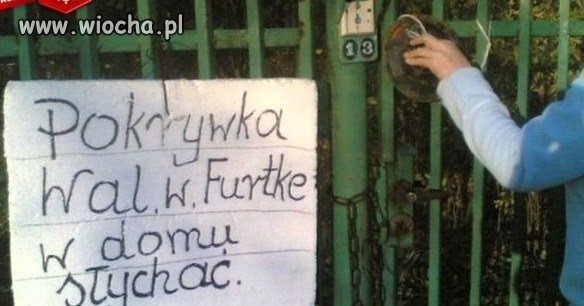 www.wiocha.pl
13
Pokrywka
Wal. w. Furtke
w domu
słychać.